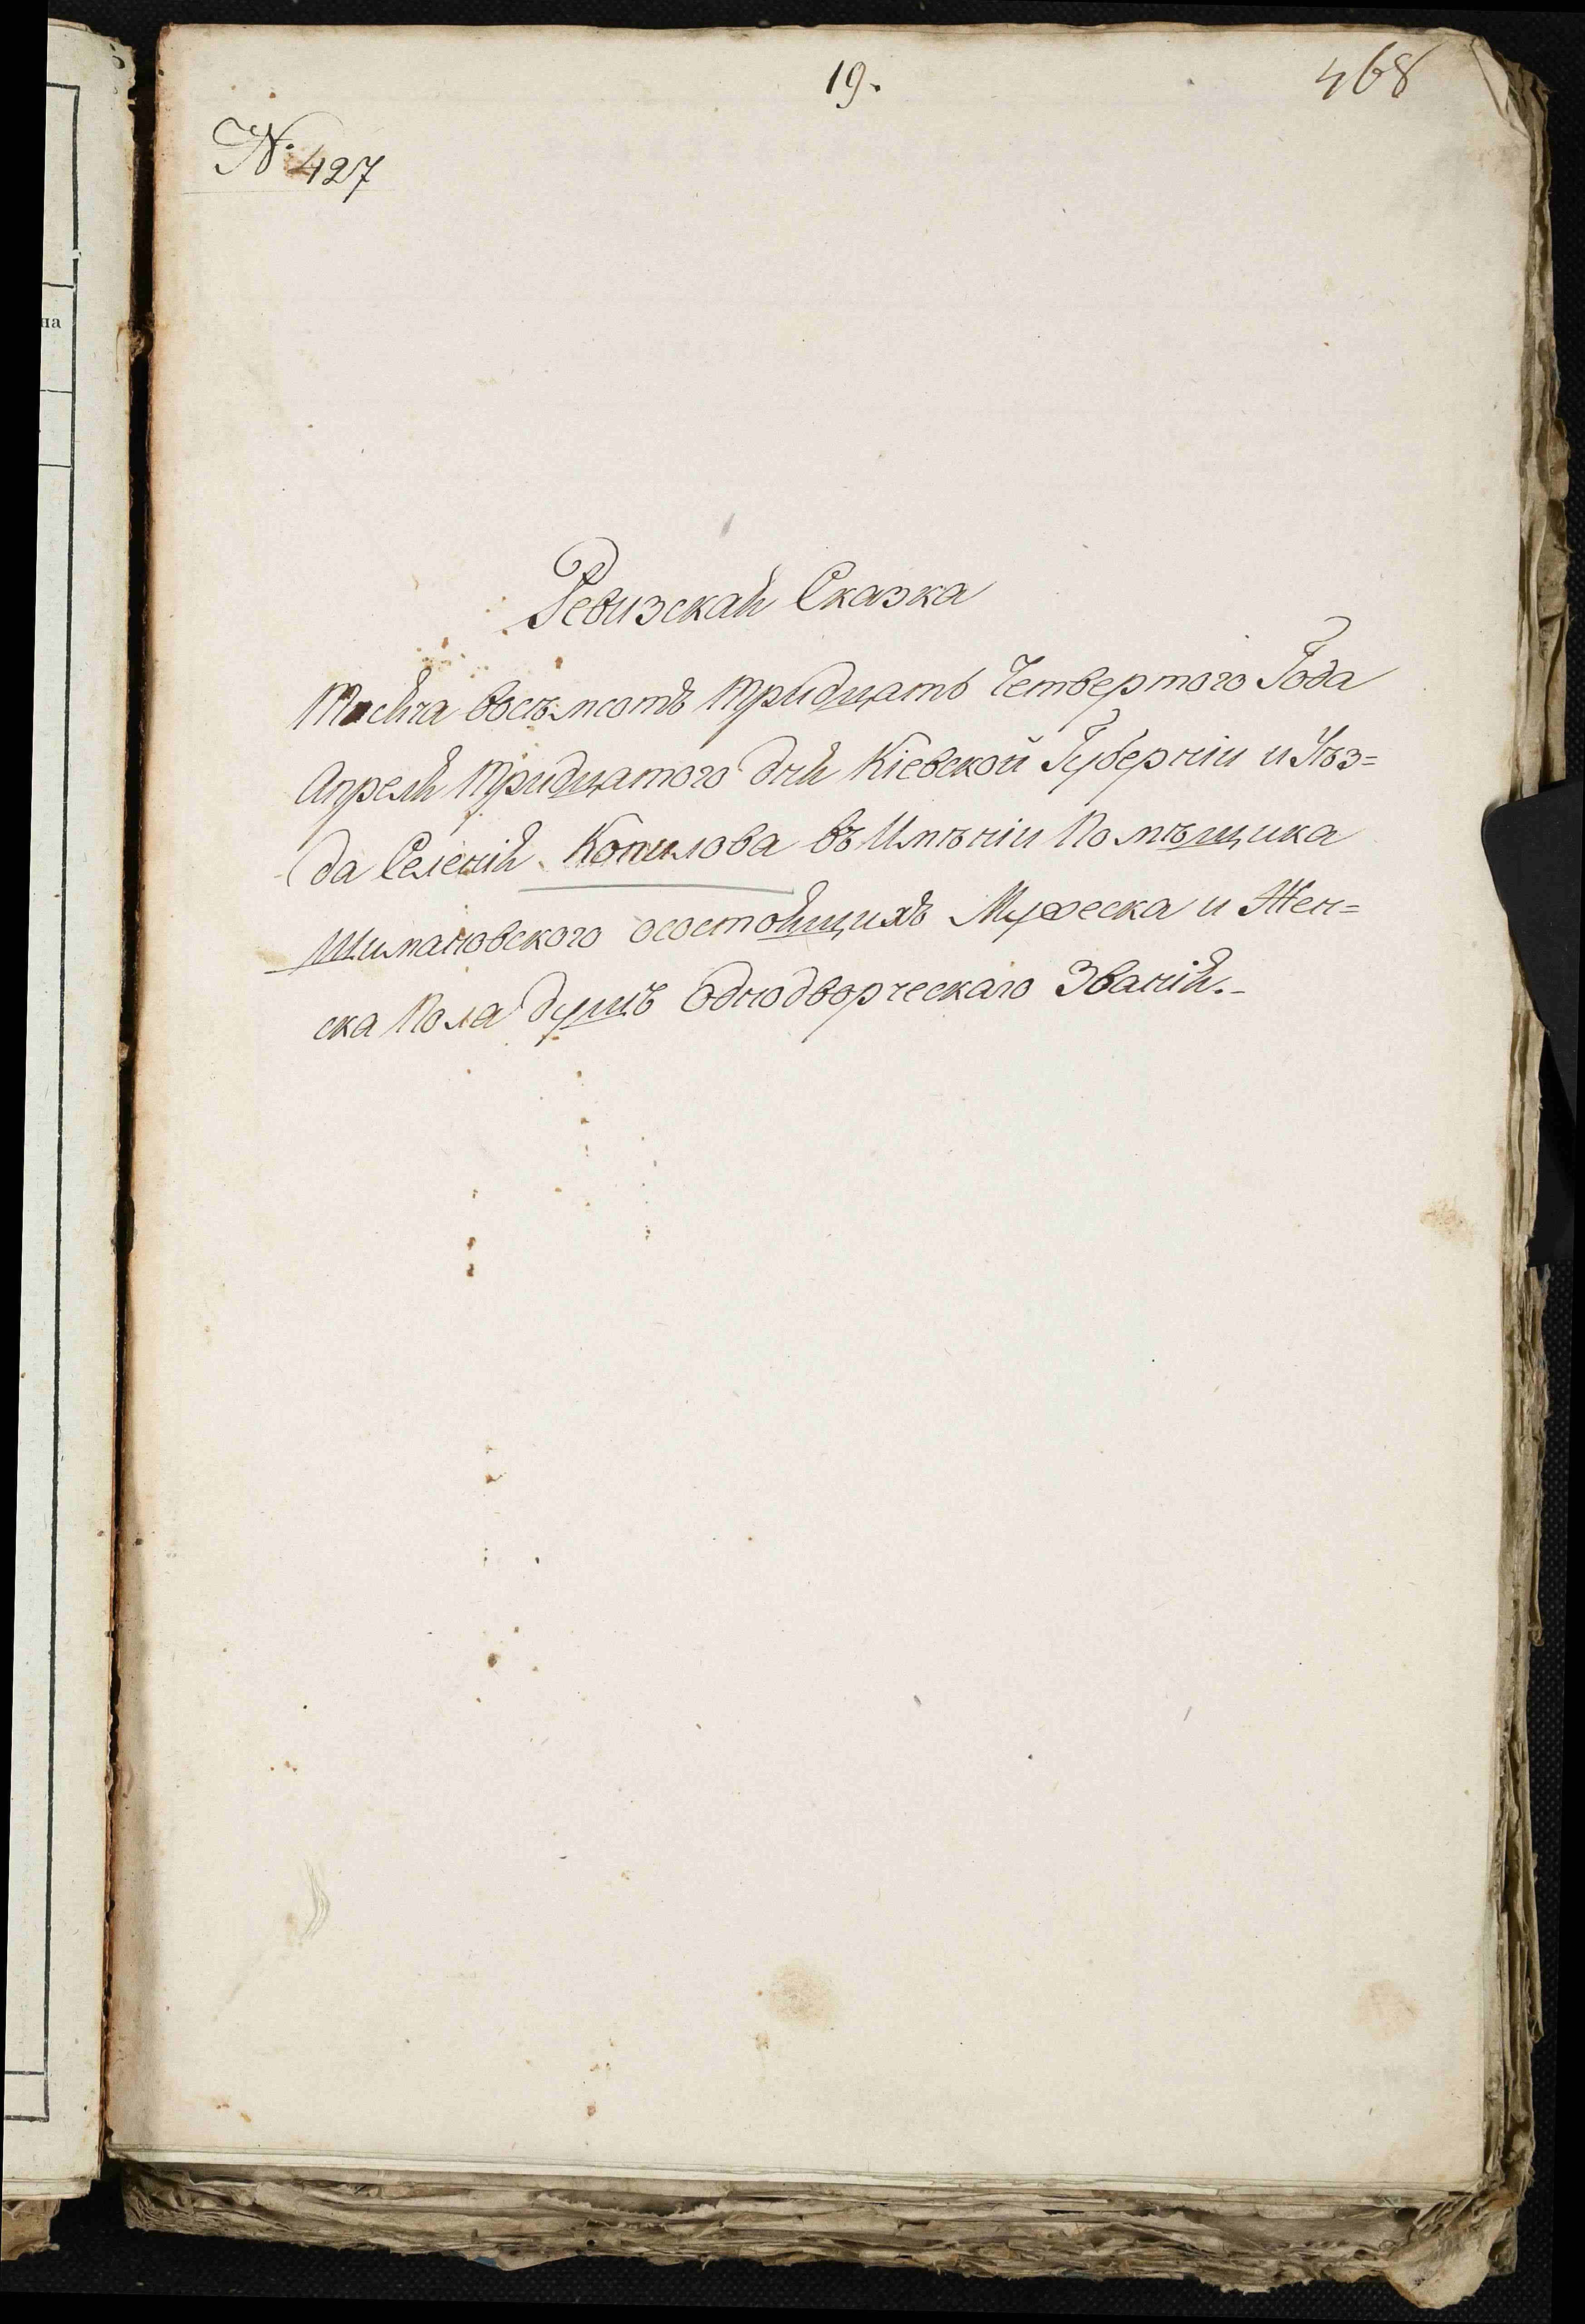 19.
468
№ 427
Ревизская Сказка
Тысяча восъмсотъ тридцать Четвертого Года
Апреля тридцатого дня Кіевской Губерніи и Уѣз=
да Селенія Копилова въ Имѣніи Помѣщика
Шимановского осостоящихъ Мужеска и Жен=
ска Пола душъ Однодворческаго Званія.-
на